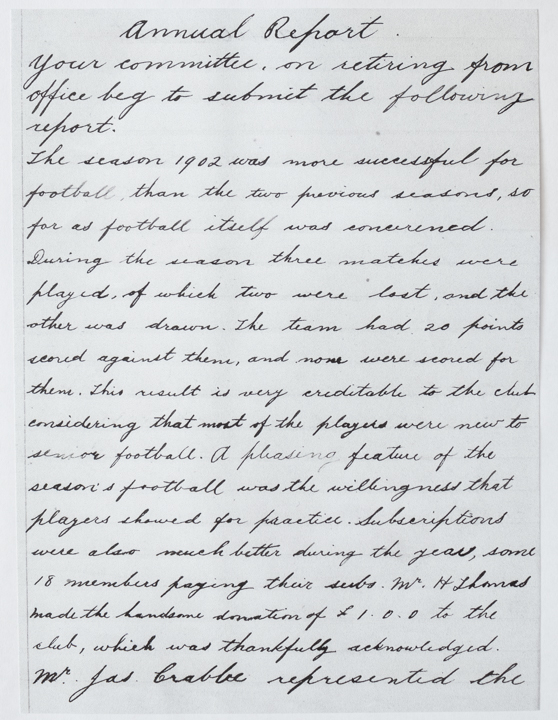 Annual Report.
Your committee, on retiring from
office beg to submit the following
report.
The season 1902 was more successful for
football, than the two previous seasons, so
far as football itself was concerened.
During the season three matches were
played, of which two were lost, and the
other was drawn. The team had 20 points
scored against them, and none were scored for
them. This result is very creditable to the club
considering that most of the players were new to
senior football. A pleasing feature of the
season's football was the willingness that
players showed for practice. Subscriptions
were also much better during the year, some
18 members paying their subs. Mr. H Thomas
made the handsome donation of £ 1. 0. 0 to the
club, which was thankfully acknowledged.
Mr. Jas. Crabbe represented the